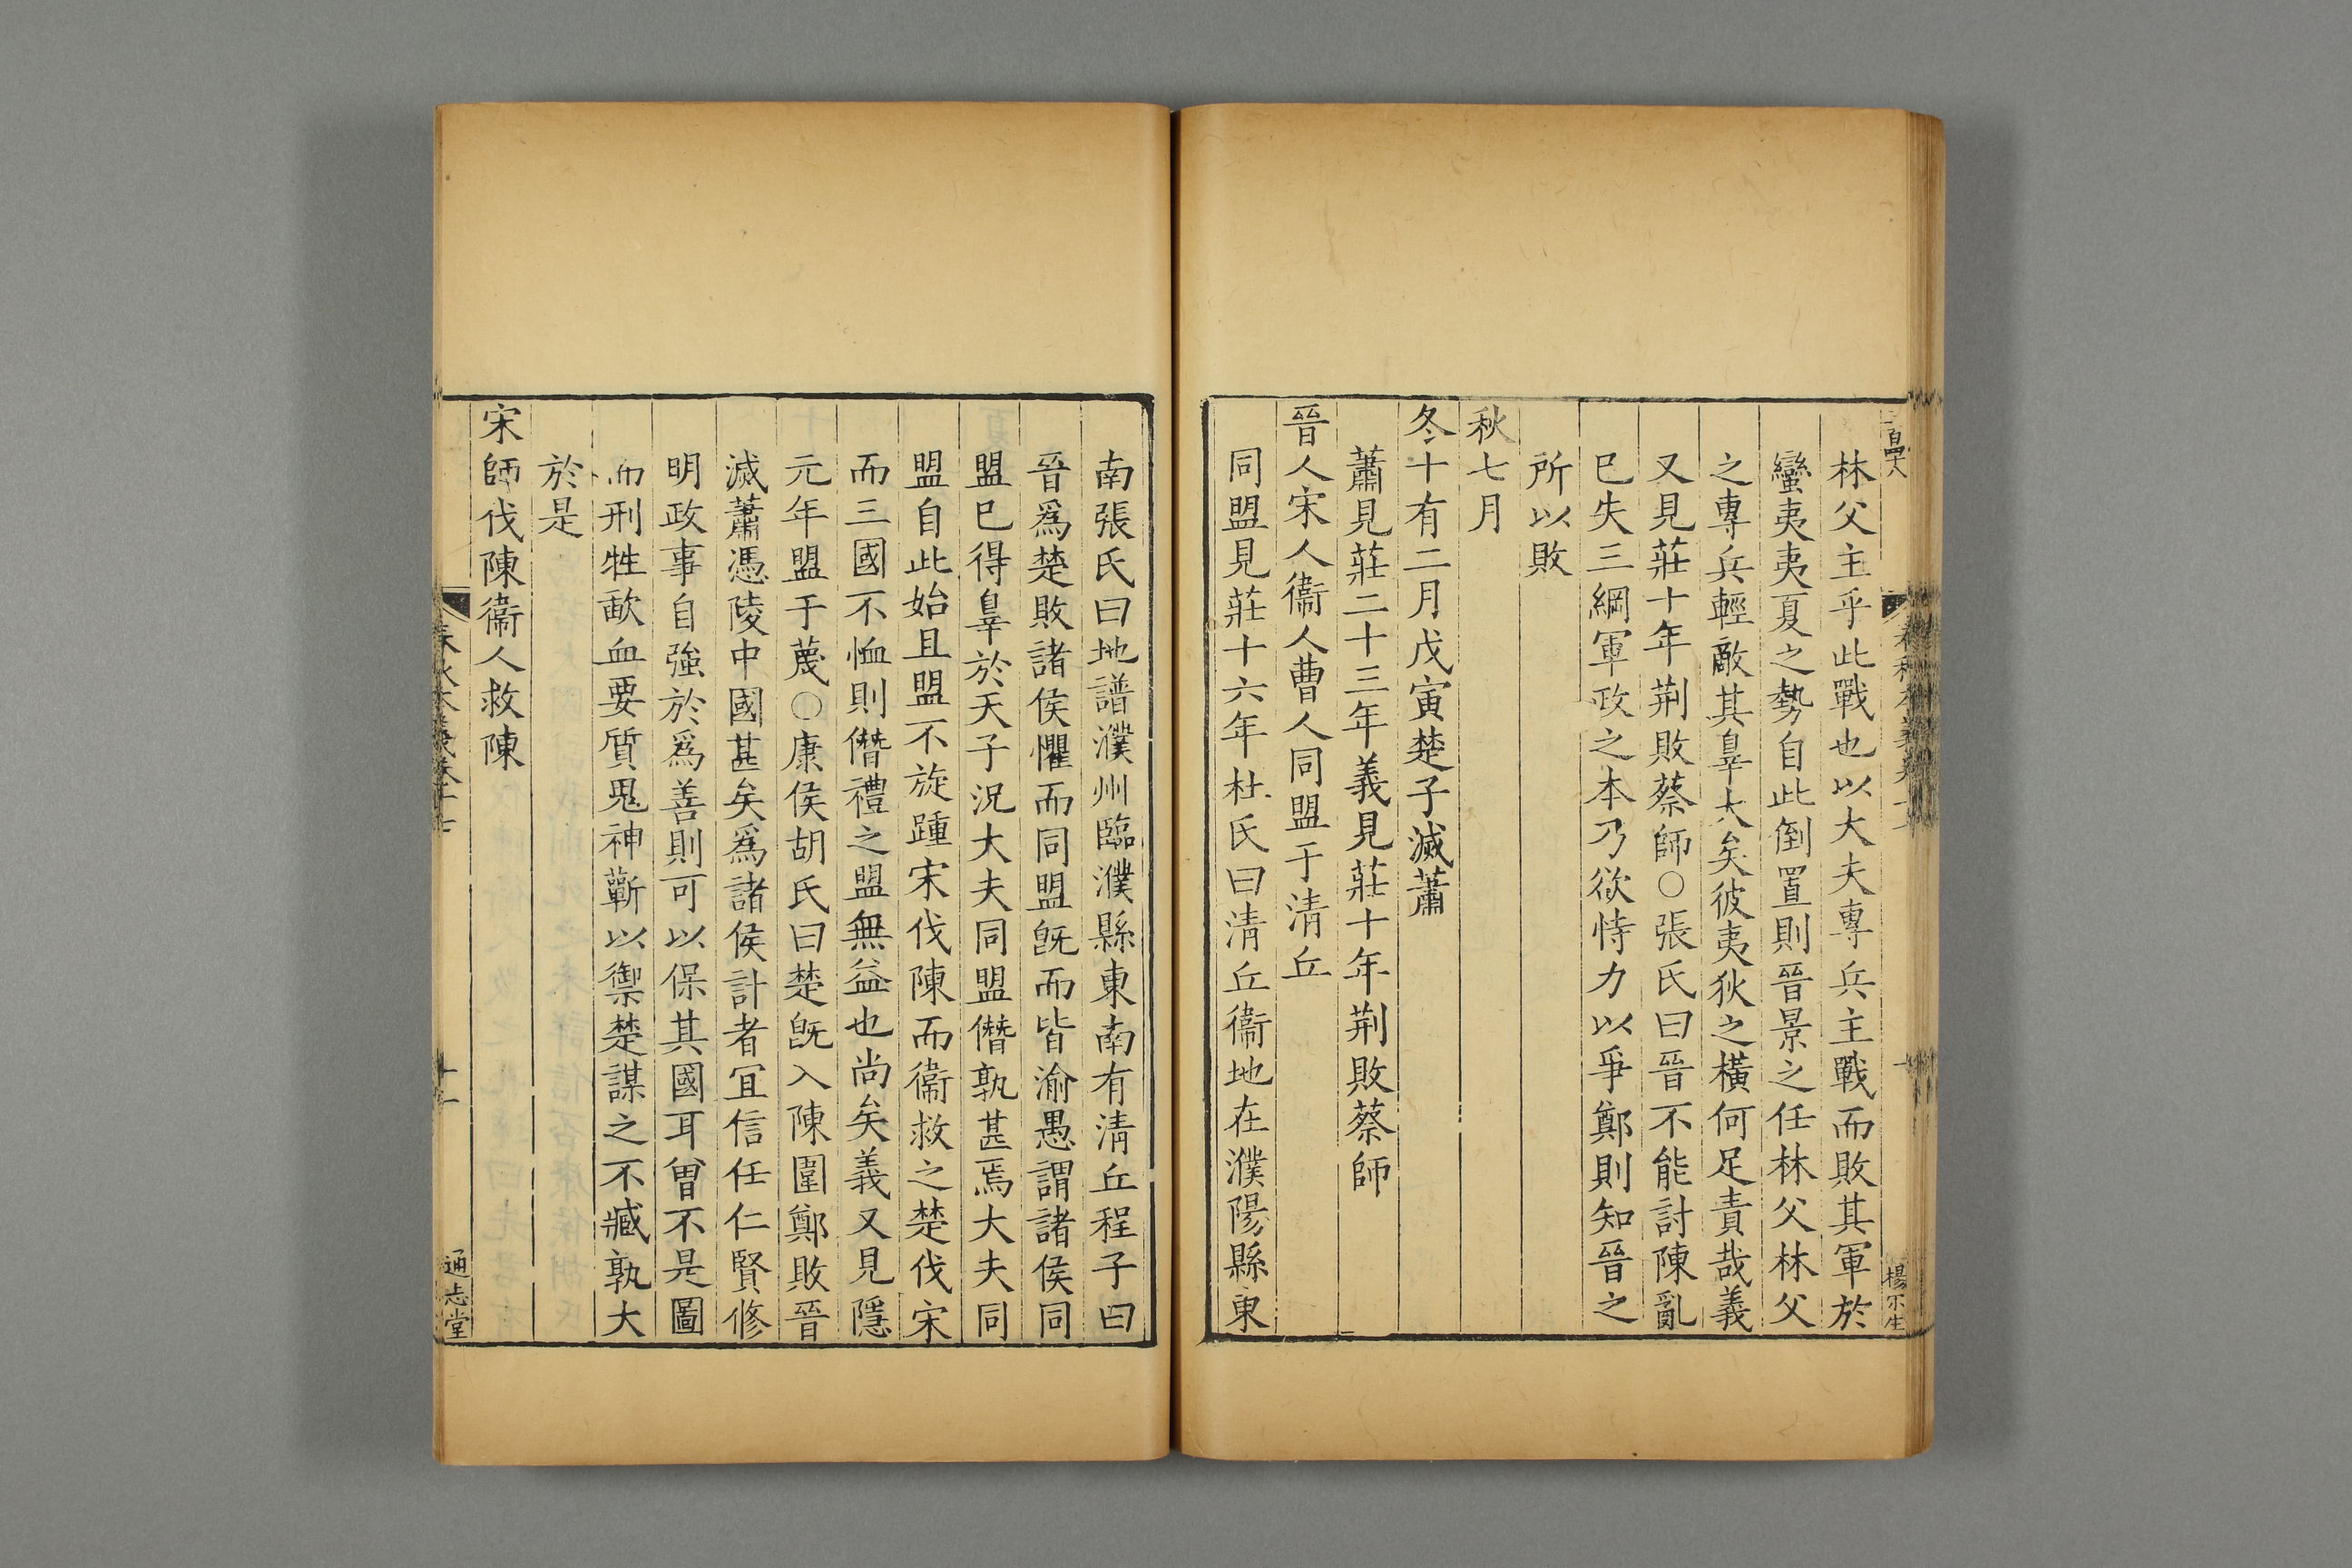 林父主乎此戰也以大夫專兵主戰而敗其軍於
蠻夷夷夏之勢自此倒置則晉景之任林父林父
之專兵輕敵其辠大矣彼夷狄之橫何足責哉義
又見莊十年荆敗蔡師○張氏曰晉不能討陳亂
已失三綱軍政之本乃欲恃力以爭鄭則知晉之
所以敗
秋七月
冬十有二月戊寅楚子滅蕭
蕭見莊二十三年義見莊十年荆敗蔡師
晉人宋人衞人曹人同盟于清丘
同盟見莊十六年杜氏曰清丘衞地在濮陽縣東
南張氏曰地譜濮州臨濮縣東南有清丘程子曰
晉爲楚敗諸侯懼而同盟旣而皆渝愚謂諸侯同
盟已得辠於天子況大夫同盟僭孰甚焉大夫同
盟自此始且盟不旋踵宋伐陳而衞救之楚伐宋
而三國不恤則僭禮之盟無益也尚矣義又見隱
元年盟于蔑○康侯胡氏曰楚旣入陳圍鄭敗晉
滅蕭憑陵中國甚矣爲諸侯計者宜信任仁賢修
明政事自強於爲善則可以保其國耳曾不是圖
而刑牲歃血要質鬼神蘄以禦楚謀之不臧孰大
於是
宋師伐陳衞人救陳
春秋本義卷十七
十一
通志堂